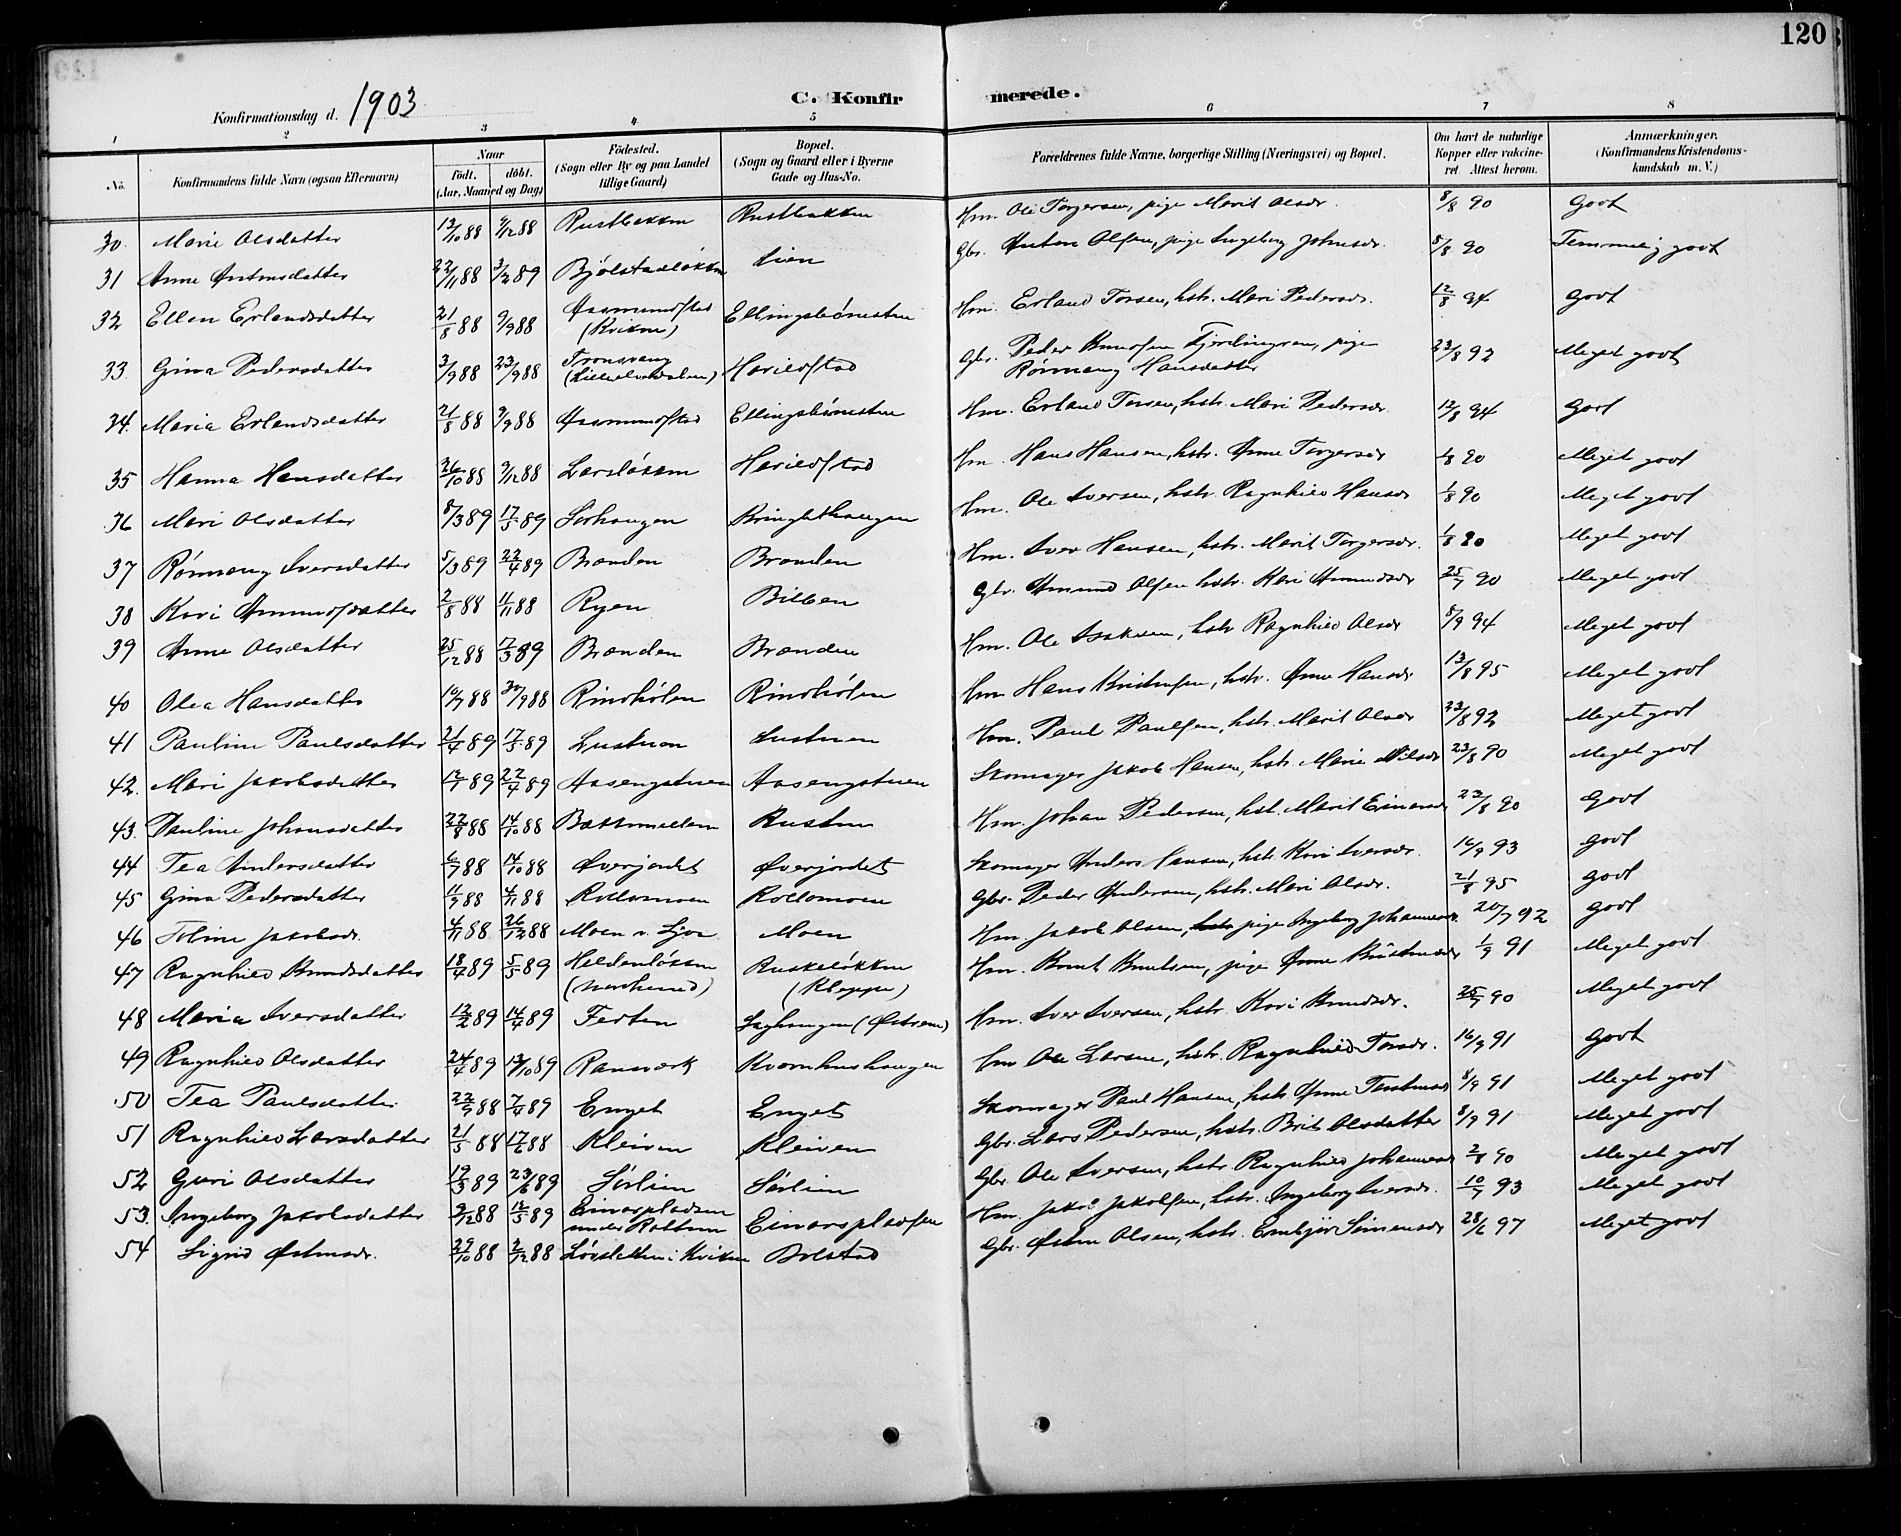 120
Konfirmationsdag d. 1903
C. Konfirmerede.
1 2 3 4 5 6 7 8
No. Konfirmandens fulde Navn (ogsaa Efternavn) Naar födt. döbt. (Aar, Maaned og Dag) Födested. (Sogn eller By og paa Landet tillige Gaard) Bopæl. (Sogn og Gaard eller i Byerne Gade og Hus-No. Forældrenes fulde Navne, borgerlige Stilling (Næringsvei) og Bopæl. Om havt de naturlige Kopper eller vakcineret Attest herom. Anmærkninger. (Konfirmandens Kristendomskundskab m. V.)
30 Marie Olsdatter 13/10 88 9/12 88 Rustbakken Rustbakken Hm. Ole Torgersen, pige Marit Olsdr. 8/8 90 Godt
31 Anne Antonsdatter 22/11 88 3/2 89 Bjölstadløkken Lien Gbr. Anton Olsen, pige Ingeborg Johnsdr. 8/8 90 Temmelig godt
32 Ellen Erlandsdatter 21/8 88 9/9 88 Aasmundstad (Kvikne) Ellingsbönestuen Hm. Erland Torsen, hstr. Mari Pedersdr. 12/8 94 Godt
33 Gina Pedersdatter 3/9 88 23/9 88 Tronsvang (Lilleelvedalen) Harildstad Gbr. Peder Knudsen Fjerdingren, pige Rønnaug Hansdatter 23/8 92 Meget godt
34 Maria Erlandsdatter 21/8 88 9/9 88 Aasmundstad Ellingsbönestuen Hm. Erland Torsen, hstr. Mari Pedersdr. 12/8 94 Godt
35 Hanna Hansdatter 26/10 88 9/12 88 Larsløkken Harildstad Hm. Hans Hansen, hstr. Anne Torgersdr 1/8 90 Meget godt
36 Mari Olsdatter 8/3 89 17/5 89 Sørhaugen Bringlthaugen Hm. Ole Iversen, hstr. Ragnhild Hansdr 1/8 90 Meget godt
37 Rønnaug Iversdatter 5/3 89 22/4 89 Brænden Brænden Hm. Iver Hansen, hstr. Marit Torgersdr. 1/8 90 Meget godt
38 Kari Amundsdatter 2/8 88 11/11 88 Ryen Bilben Gbr. Amund Olsen hstr. Kari Amundsdr 25/7 90 Meget godt
39 Anne Olsdatter 25/12 88 17/3 89 Brænden Brænden Hm. Ole Isaksen, hstr Ragnhild Olsdr 8/9 94 Meget godt
40 Olea Hansdatter 10/9 88 30/9 88 Rindhølen Rindhølen Hm Hans Kristensen, hstr. Anne Hansdr 13/8 95 Meget godt
41 Pauline Paulsdatter 21/4 89 17/5 89 Lustuen Lustuen Hm. Paul Paulsen, hstr. Marit Olsdr 23/8 92 Meget godt
42. Mari Jakobsdatter 12/1 89 22/4 89 Aasengstuen Aasengstuen Skomager Jakob Hansen, hstr Marie Nilsdr 23/8 90 Meget godt
43. Pauline Johansdatter 22/8 88 14/10 88 Battumellem Rusten Hm. Johan Pedersen, hst. Marit Einarsdr 23/8 90 Godt
44 Tea Andersdatter 6/9 88 14/10 88 Øverjordet Øverjordet Skomager Anders Hansen, hstr Kari Iversdr. 16/9 93 Godt
45 Gina Pedersdatter 11/9 88 4/11 88 Roldomoen Roldomoen Gbr. Peder Andersen, hstr. Mari Olsdr. 21/8 95 Godt
46 Toline Jakobsdr. 4/11 88 26/12 88 Moen v. Sjoa Moen Hm. Jakob Olsen, pige Ingeborg Johannesdr. 20/7 92 Godt
47 Ragnhild Knudsdatter 18/4 89 5/5 89 Heldenløkken (Nordherred) Ruskeløkken (Kleppe) Hm. Knut Knutsen, pige Anne Kristensdr 1/9 91 Meget godt
48 Maria Iversdatter 12/2 89 14/4 89 Ferten Laghaugen (Østrem) Hm. Iver Iversen, hstr. Kari Knudsdr. 25/7 90 Meget godt
49 Ragnhild Olsdatter 24/4 89 13/10 89 Ranværk Kvernhushaugen Hm Ole Larsen, hstr. Ragnhild Torsdr. 16/9 91 Godt
50 Tea Paulsdatter 22/9 88 7/4 89 Enget Enget Skomager Paul Hansen, hstr Anne Torstensdr 8/9 91 Meget godt
51 Ragnhild Larsdatter 21/5 88 17/6 88 Kleiven Kleiven Gbr. Lars Pedersen, hstr. Brit Olsdatter 8/9 91 Meget godt
52 Guri Olsdatter 19/3 89 23/6 89 Sørlien Sørlien Gbr. Ole Iversen, hstr Ragnhild Johannesdr 2/8 90 Meget godt
53. Ingeborg Jakobsdatter 9/12 88 12/5 89 Einarspladsen under Rottum Einarspladsen Hm. Jakob Jakobsen, hstr. Ingeborg Iversdr. 10/9 93 Meget godt
54 Sigrid Østensdr. 29/10 88 2/12 88 Løvsletten i Kvikne Bolstad Gbr. Østen Olsen, hstr. Embjør Simensdr 28/6 97 Meget godt